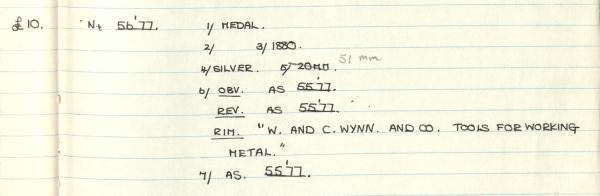 £10. Nt 56'77. 1/ MEDAL.
2/ 3/ 1880.
51 mm
4/ SILVER. 5/
6/ OBV. AS 55'77.
REV. AS 55'77.
RIM. "W. AND C. WYNN. AND CO. TOOLS FOR WORKING
METAL."
7/ AS. 55'77.